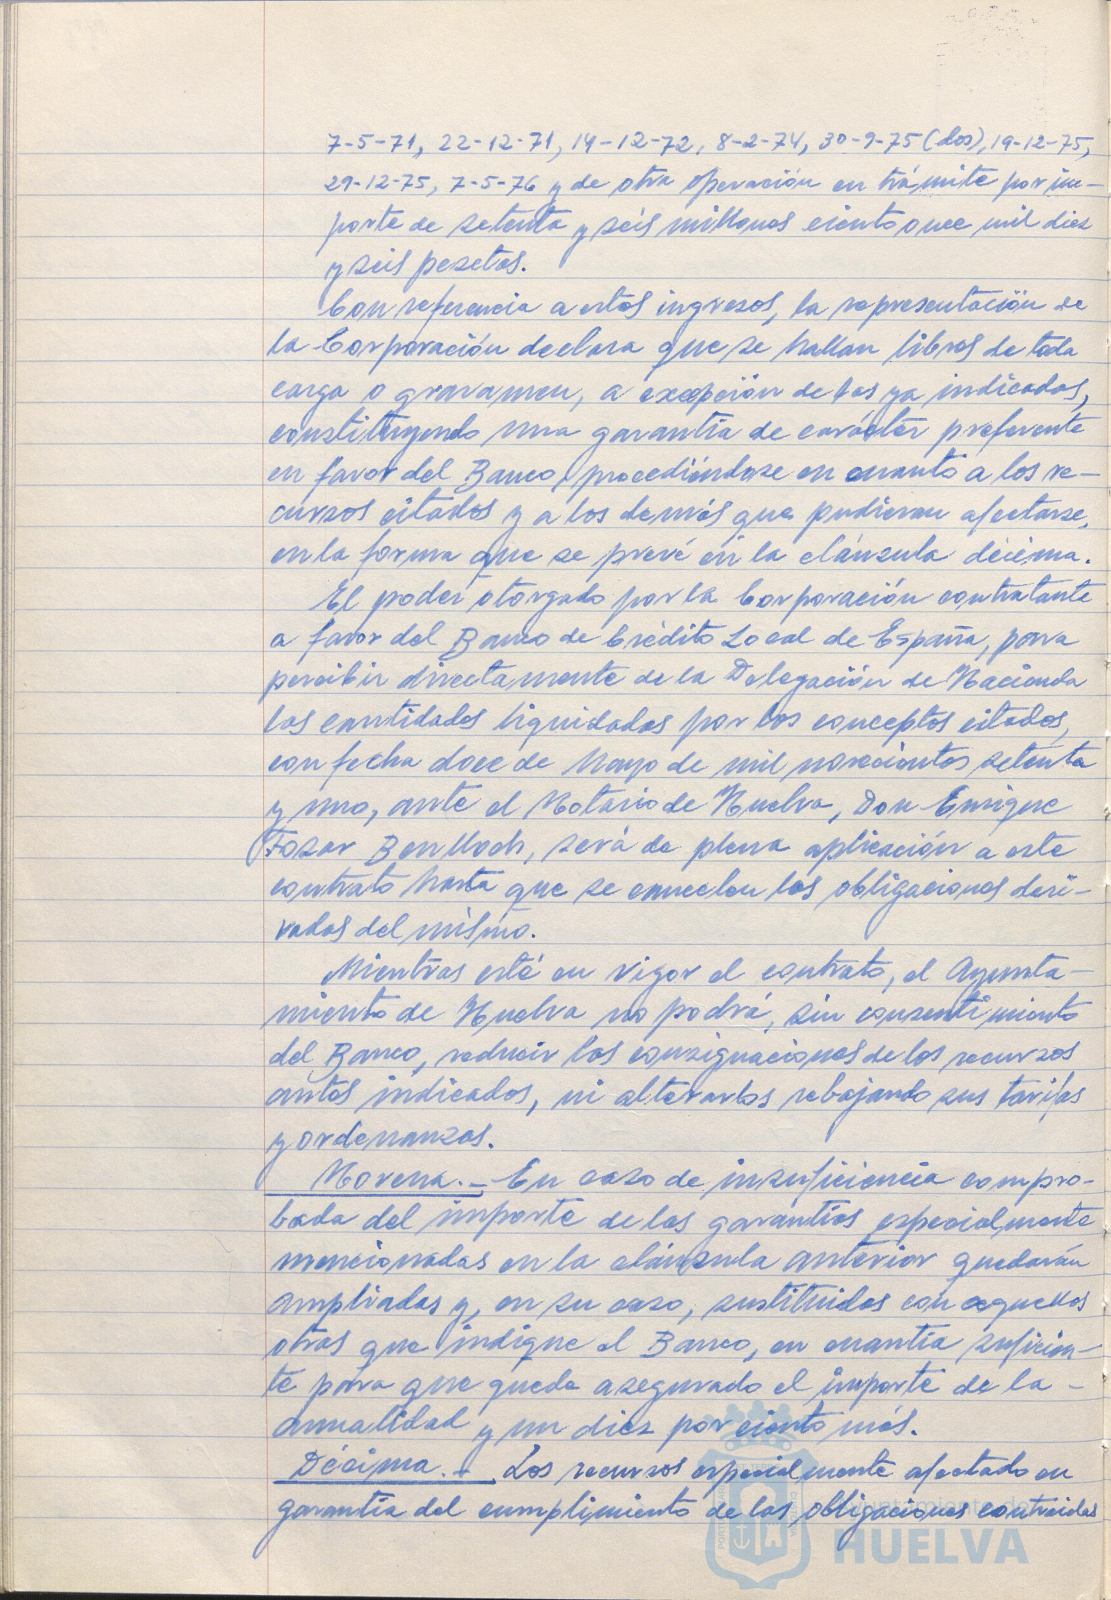 7-5-71, 22-12-71, 14-12-72, 8-2-74, 30-9-75 (dos), 19-12-75,
29-12-75, 7-5-76 y de otra operación en trámite por im-
porte de setenta y seis millones ciento once mil diez
y seis pesetas.
Con referencia a estos ingresos, la representación de
la Corporación declara que se hallan libres de toda
carga o gravamen, a excepción de los ya indicados,
constituyendo una garantía de carácter preferente
en favor del Banco, procediéndose en cuanto a los re-
cursos citados y a los demás que pudieran afectarse,
en la forma que se prevé en la cláusula décima.
El poder otorgado por la Corporación contratante
a favor del Banco de Crédito Local de España, para
percibir directamente de la Delegación de Hacienda
las cantidades liquidadas por los conceptos citados,
con fecha doce de Mayo de mil novecientos setenta
y uno, ante el Notario de Huelva, Don Enrique
Fosar Benlloch, será de plena aplicación a este
contrato hasta que se cancelen las obligaciones deri-
vadas del mismo.
Mientras esté en vigor el contrato, el Ayunta-
miento de Huelva no podrá, sin consentimiento
del Banco, reducir las consignaciones de los recursos
antes indicados, ni alterarlos rebajando sus tarifas
y ordenanzas.
Novena.- En caso de insuficiencia compro-
bada del importe de las garantías especialmente
mencionadas en la cláusula anterior quedarán
ampliadas y, en su caso, sustituidas con aquellas
otras que indique el Banco, en cuantía suficien-
te para que quede asegurado el importe de la -
anualidad y un diez por ciento más.
Décima.- Los recursos especialmente afectado en
garantía del cumplimiento de las obligaciones contraidas
Ayuntamiento de
HUELVA